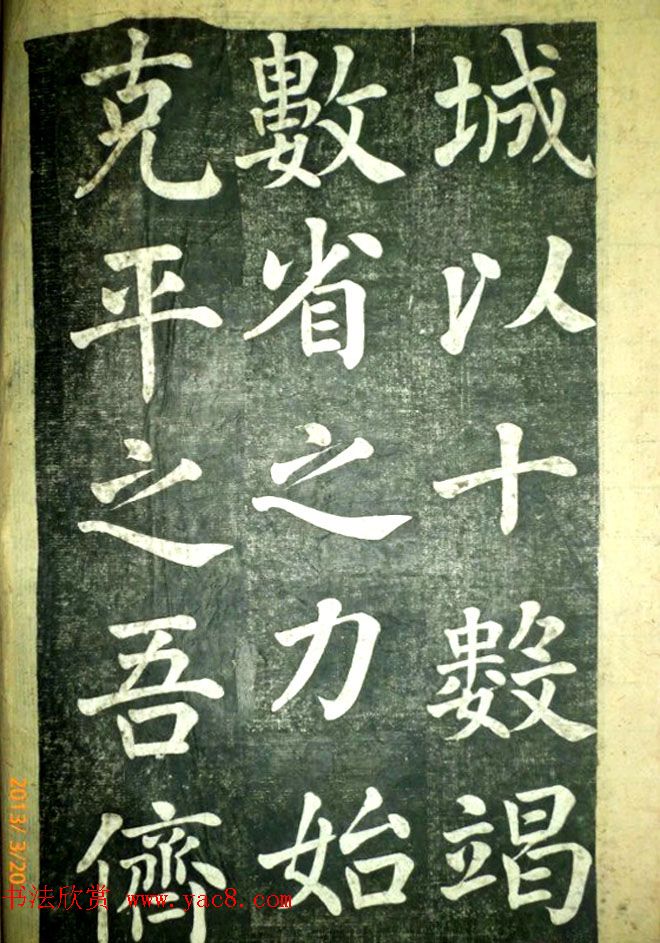 城以十數竭
數省之力始
克平之吾儕
2013/3/20
书法欣赏 www.yac8.com